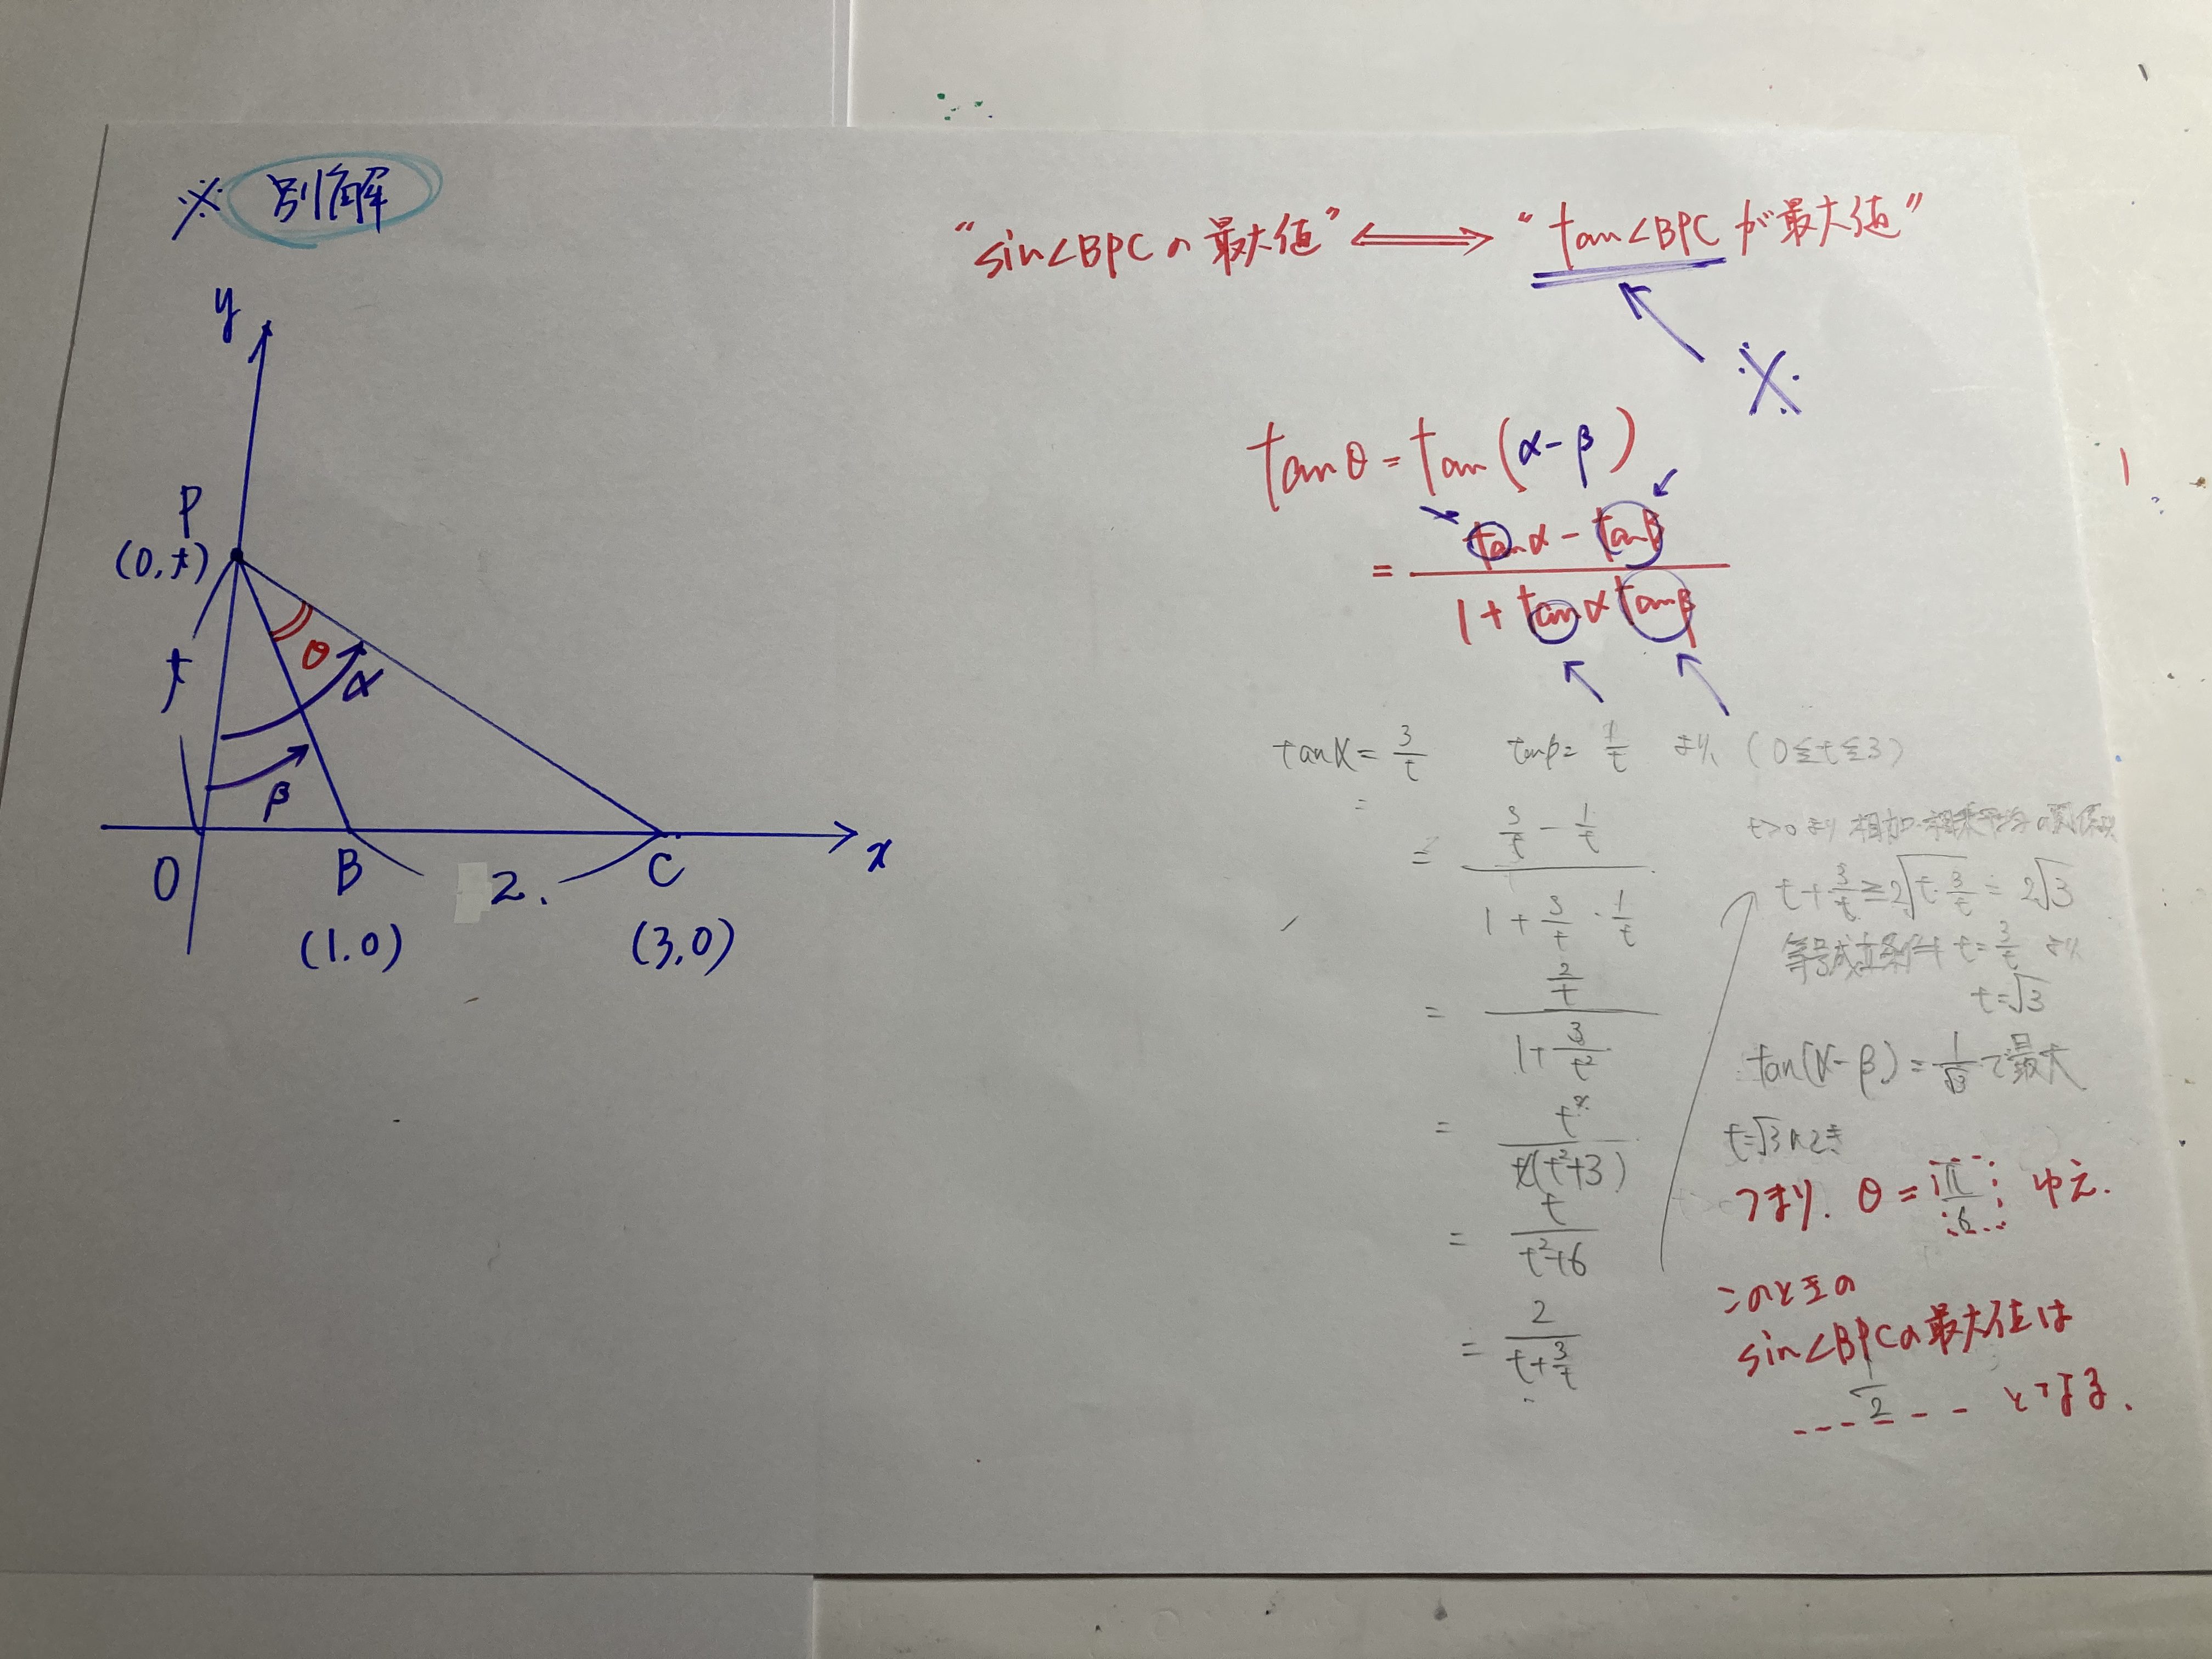 ※ 別解
"sin∠BPCの最大値" ⟺ "tan∠BPCが最大値"
※
y
P
(0,t)
t
θ
α
β
O
B
2.
C
x
(1.0)
(3,0)
tanθ = tan(α-β)
= (tanα - tanβ)/(1 + tanα tanβ)
tanα = 3/t tanβ = 1/t より (0≦t≦3)
= (3/t - 1/t)/(1 + 3/t · 1/t)
= (2/t)/(1+3/t²)
= t²/t(t²+3)
= t/(t²+6)
= 2/(t+3/t)
t>0より 相加・相乗平均の関係
t + 3/t ≧ 2√(t·3/t) = 2√3
等号成立条件 t = 3/t より
t=√3
tan(α-β) = 1/√3 で最大
t=√3のとき
つまり. θ = π/6 ゆえ.
このときの
sin∠BPCの最大値は
1/2 となる.